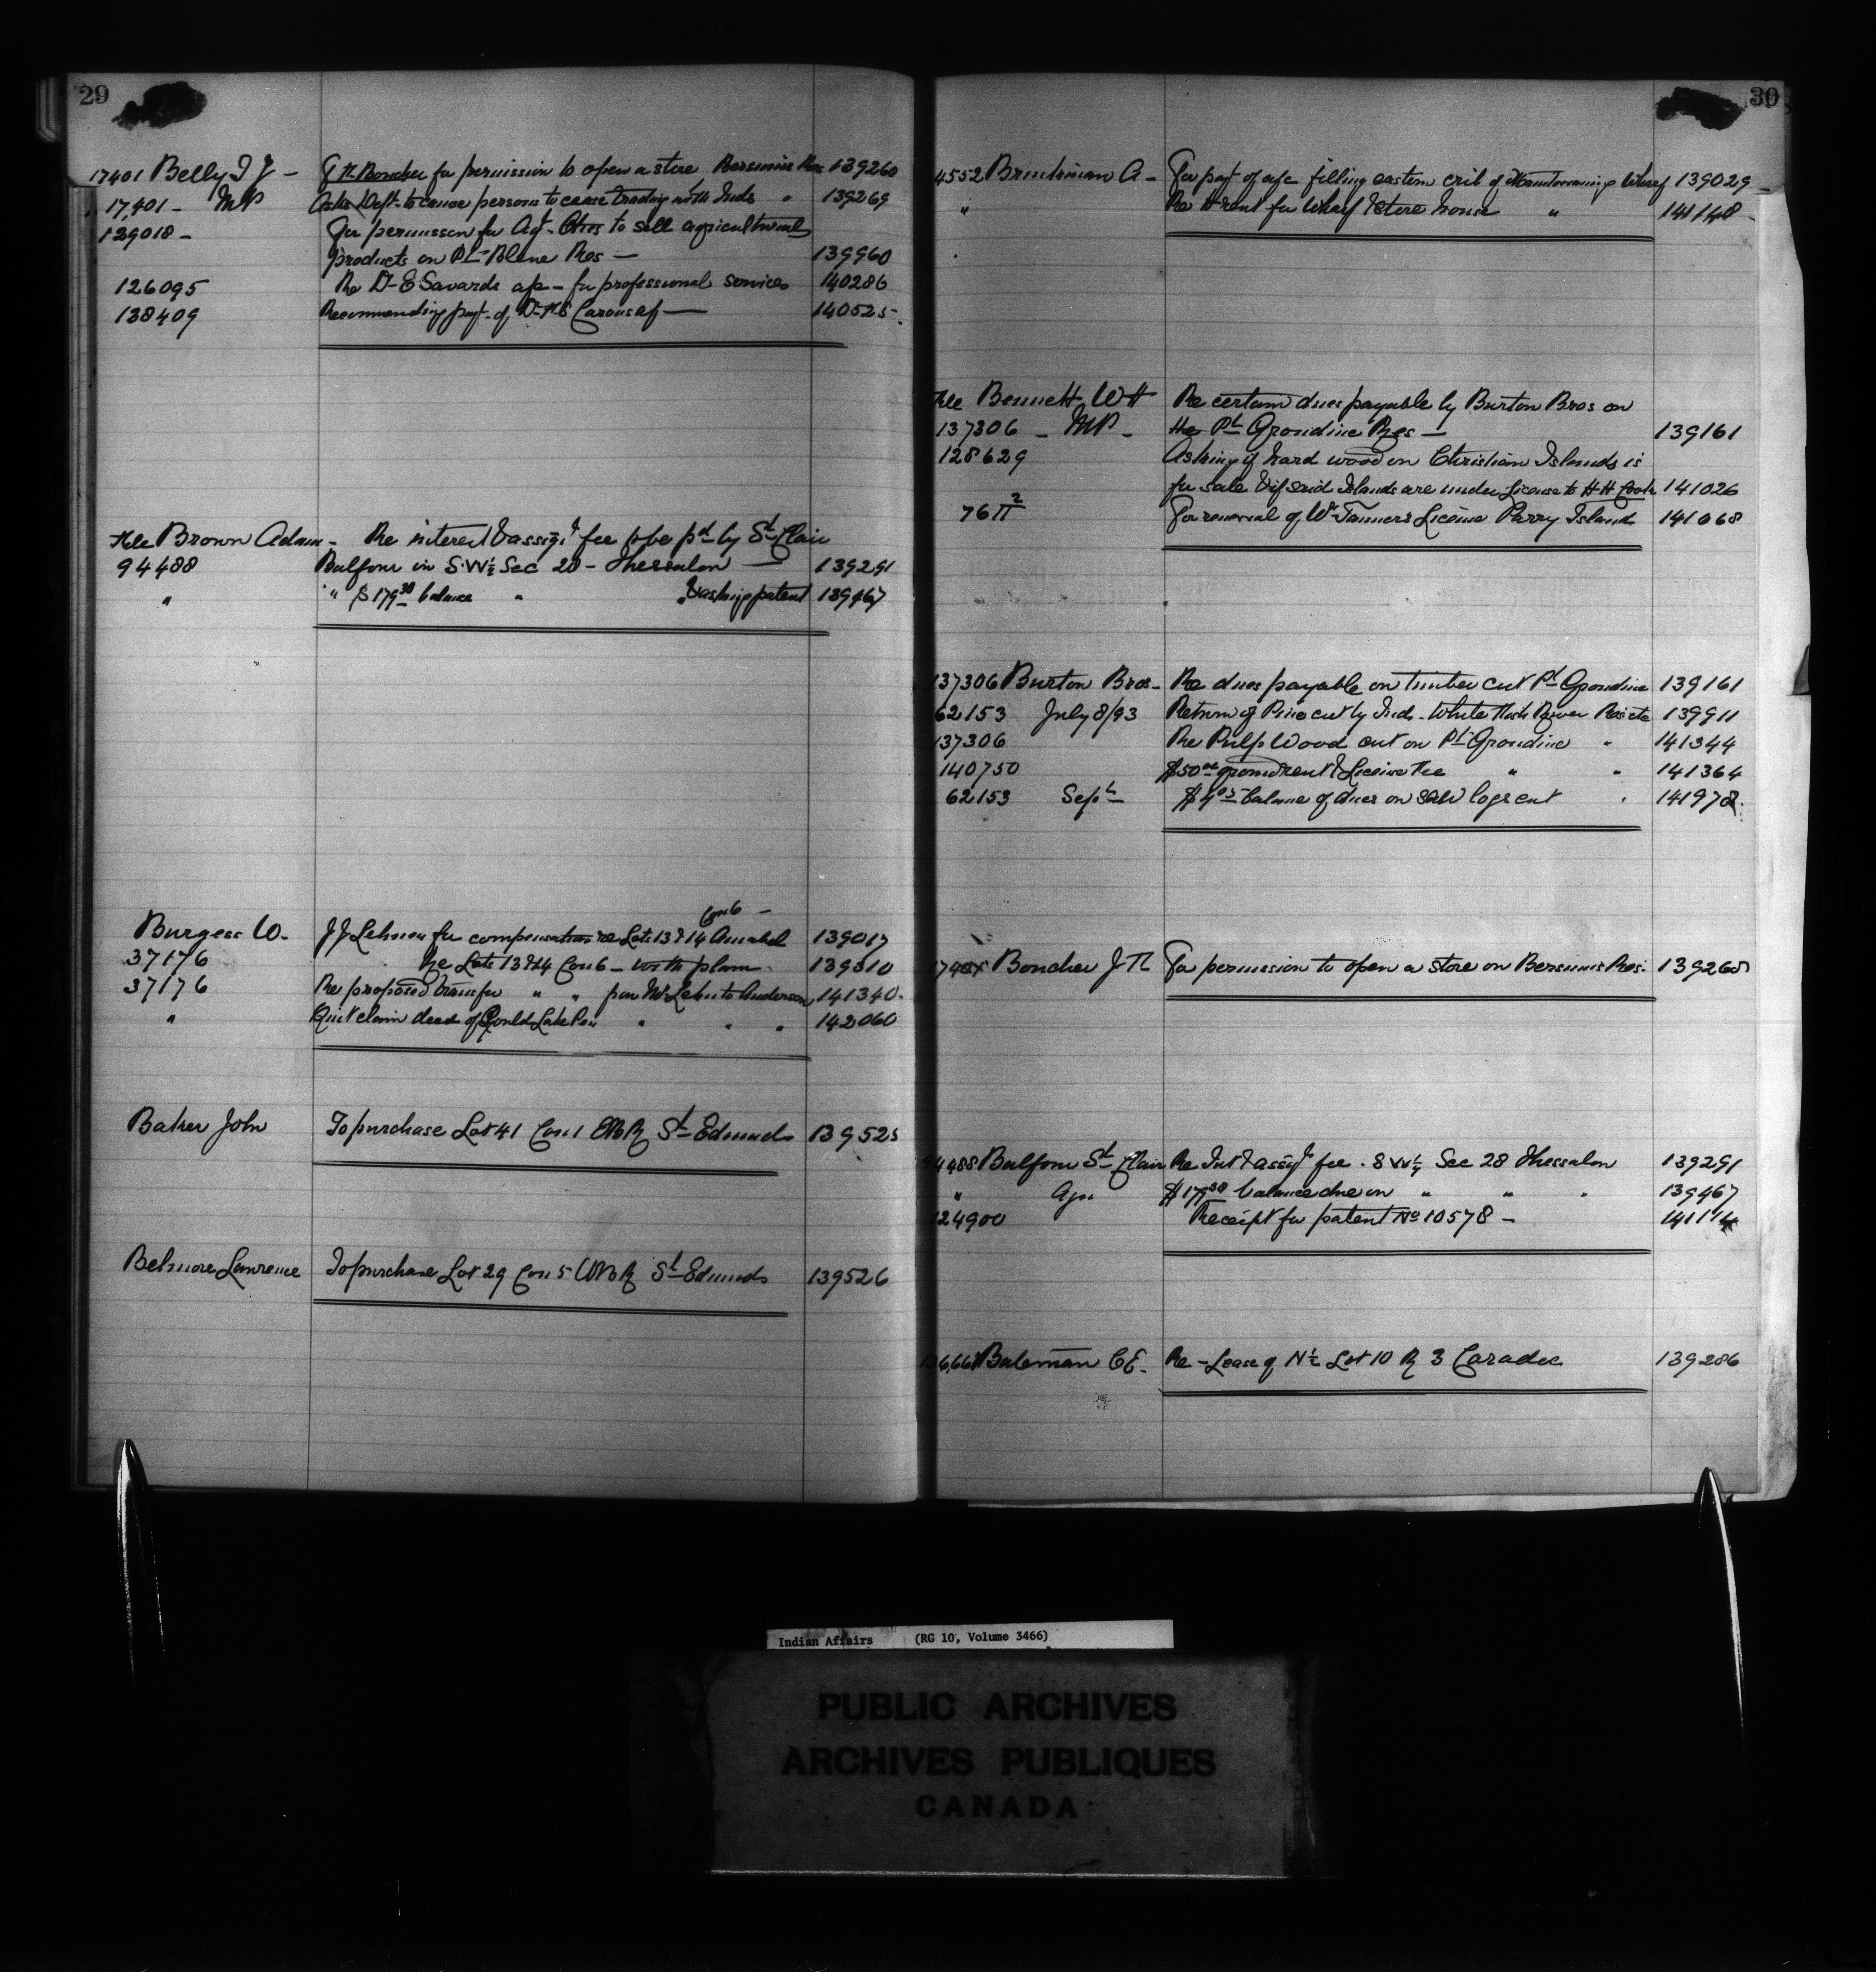 29
17401 Belly J J - J H Boucher for permission to open a store Bersimis Res 139260
17401 - MP Asks Dept. to cause persons to cease trading with Inds " 139269
129018 - For permission for Agt. Otis to sell agricultural
products on Pt Blene Res - 139960
126095 Re Dr E Savards a/c - for professional services 140286
138409 Recommending payt. of Dr H S Carons a/c - 140525
Hble Brown Adam - Re interest & assigt fee to be pd by St Clair
94488 Balfour in S.W ½ Sec 28 - Thessalon - 139291
" " $179.38 balance " " & asking patent 139467
Con 6 -
Burgess W. J J Lehnen for compensation re Lots 13 & 14 Amabel 139017
37176 Re Lots 13 & 14 Con 6 - with plan 139310
37176 Re proposed transfer " " from Mr Lehn to Anderson 141340
" Quit claim deed of Gould Lake Res " " " 142060
Baker John To purchase Lot 41 Con 1 EBR St Edmunds 139525
Belmore Lawrence To purchase Lot 29 Con 5 WBR St Edmunds 139526
30
4552 Brinkman A - For payt of a/c filling eastern crib of Manitowaning Wharf 139029
" Re rent for Wharf & Store house " 141148
Hble Bennett W H Re certain dues payable by Burton Bros on
137306 - MP - the Pt Grondine Res - 139161
128629 Asking if hard wood on Christian Islands is
for sale & if said Islands are under License to H H Cook 141026
76 π 2 For renewal of Wm Tanners License Parry Island 141068
137306 Burton Bros - Re dues payable on timber cut Pt Grondine 139161
62153 July 8/93 Return of Pine cut by Inds - White Fish River Res etc 139911
137306 Re Pulp Wood cut on Pt Grondine " 141344
140750 $50.00 ground rent & License Fee " " 141364
62153 Sept $4.05 balance of dues on saw logs cut " 141978
17401 Boucher J H For permission to open a store on Bersimis Res. 139260
94488 Balfour St Clair Re Int & assigt fee. S W ¼ Sec 28 Thessalon 139291
" Apn $179.38 balance due on " " " 139467
124900 Receipt for patent No 10578 - 141114
Bateman C E. Re - Lease of N ½ Lot 10 R 3 Caradoc 139286
Indian Affairs (RG 10, Volume 3466)
PUBLIC ARCHIVES
ARCHIVES PUBLIQUES
CANADA